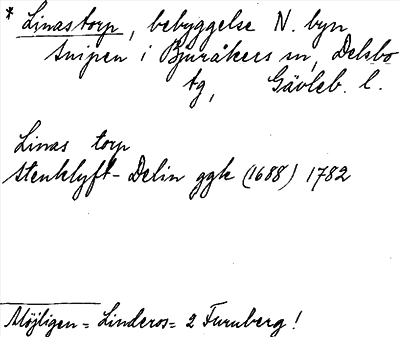 * Linastorp, bebyggelse N. byn
Snipen i Bjuråkers sn, Delsbo
tg, Gävleb. l.
Linas torp
Stenklyft-Delin ggk (1688) 1782
Möjligen = Linderos = 2 Furuberg!